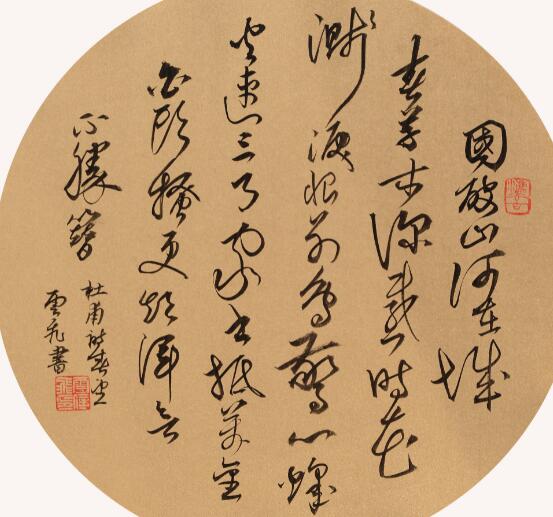 國破山河在城
春草木深感時花
濺淚恨別鳥驚心烽
火連三月家書抵萬金
白頭搔更短渾欲
不勝簪
杜甫詩春望
雲 書